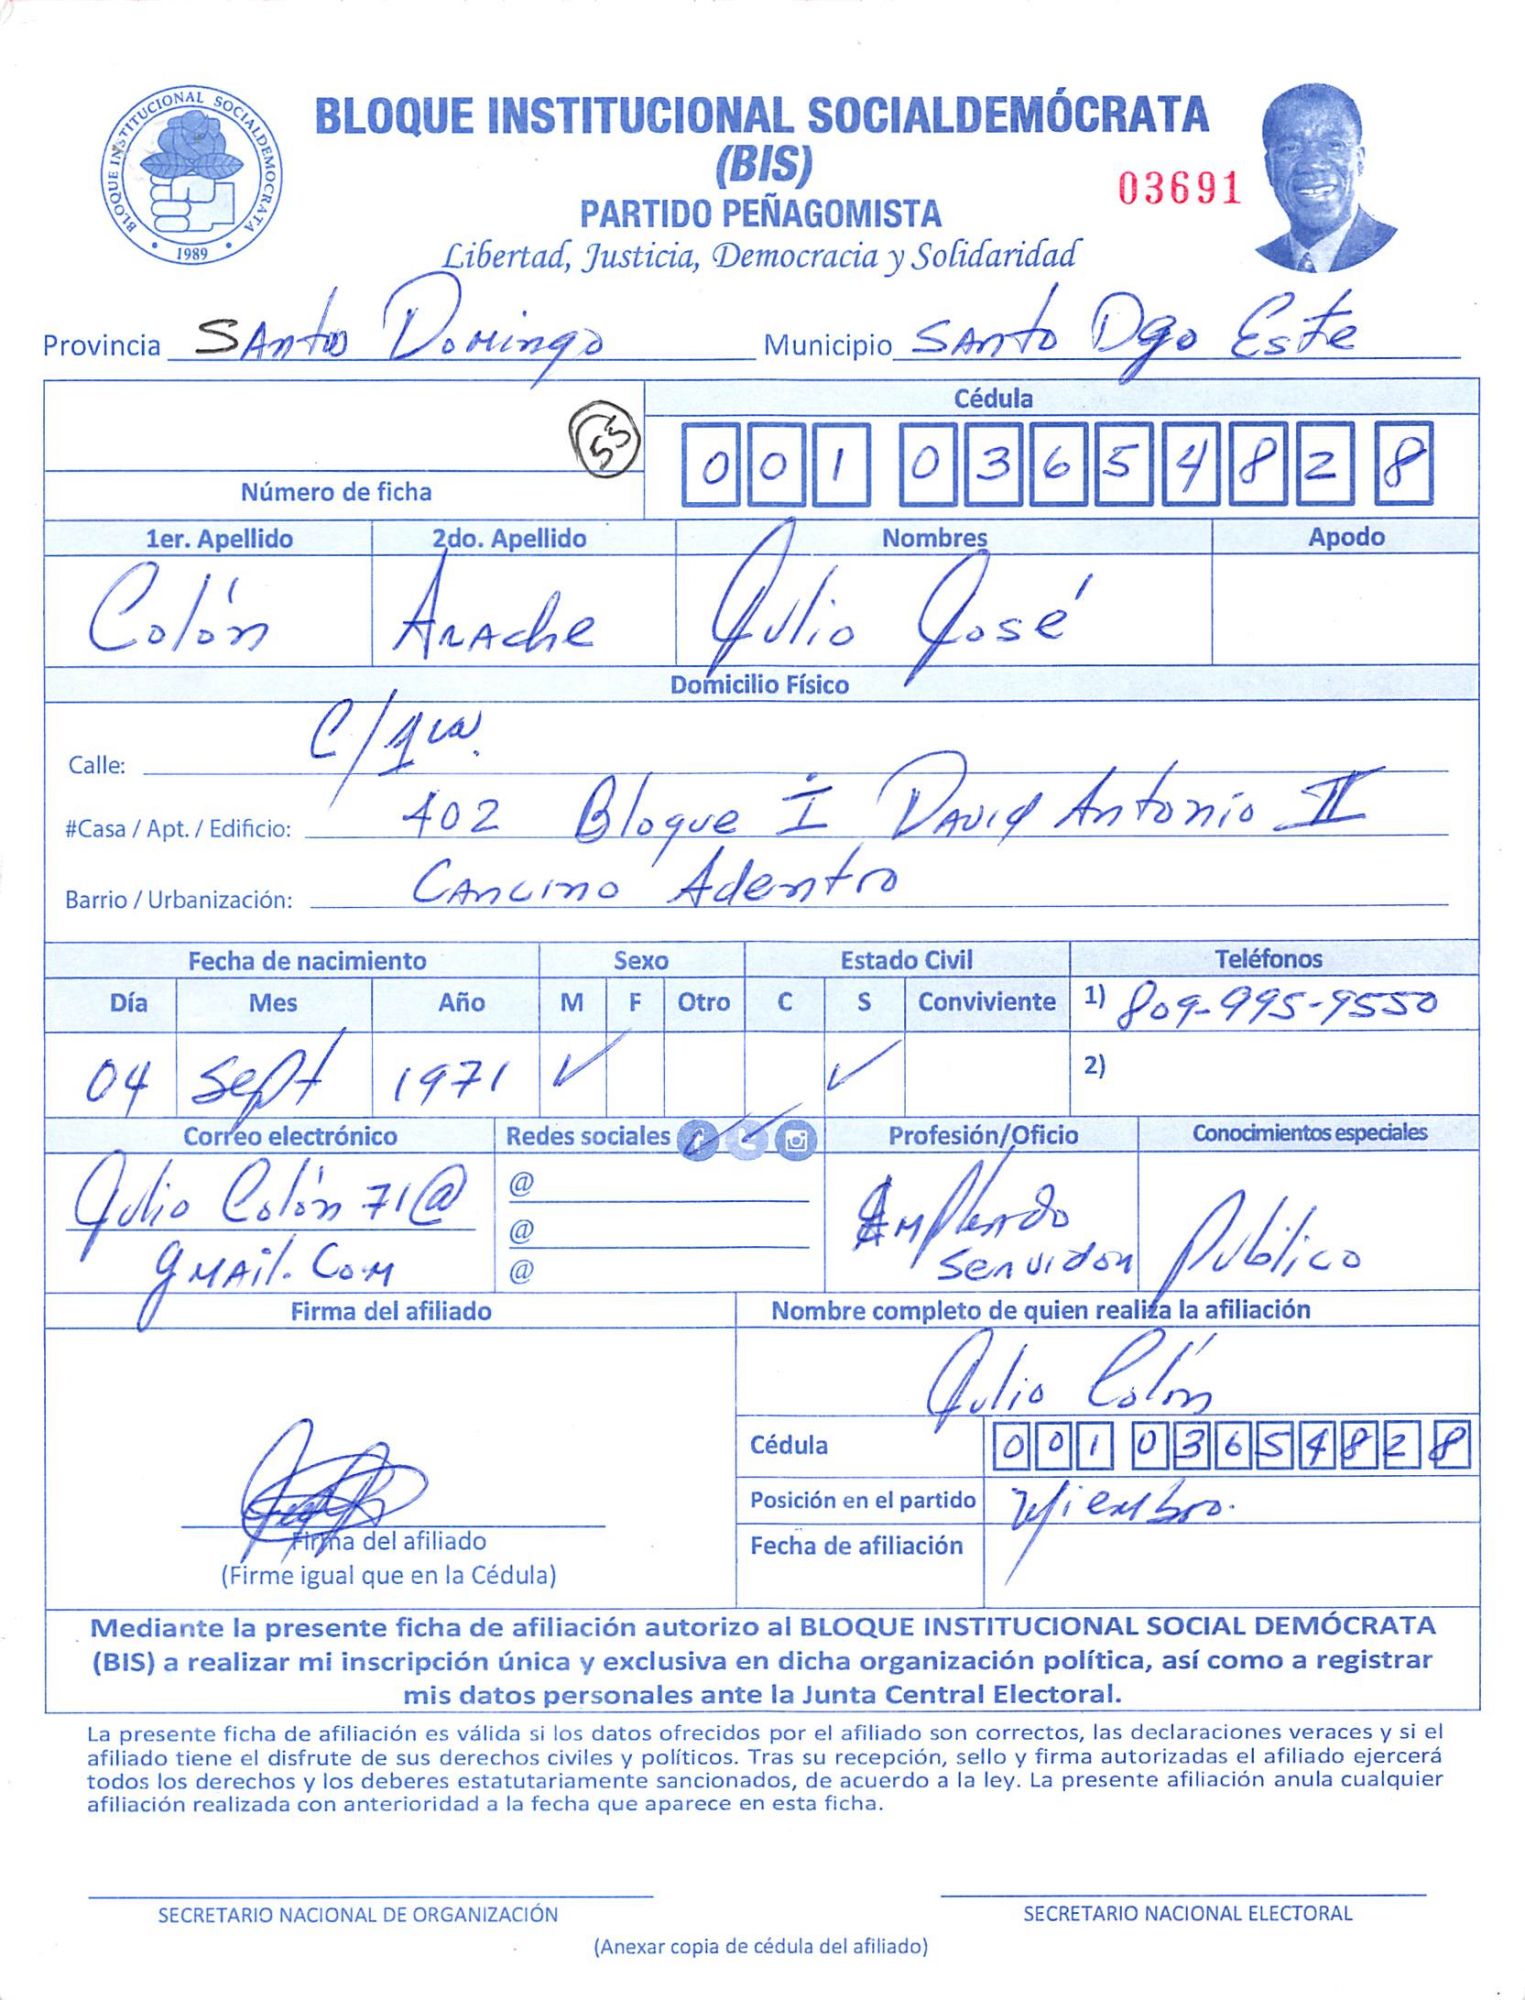 BLOQUE INSTITUCIONAL SOCIALDEMOCRATA
1989
BLOQUE INSTITUCIONAL SOCIALDEMÓCRATA
(BIS)
03691
PARTIDO PEÑAGOMISTA
Libertad, Justicia, Democracia y Solidaridad
Provincia Santo Domingo Municipio Santo Dgo Este
Cédula
55
0 0 1 0 3 6 5 4 8 2 8
Número de ficha
1er. Apellido 2do. Apellido Nombres Apodo
Colón Arache Julio José
Domicilio Físico
Calle: C/1ra.
#Casa / Apt. / Edificio: 402 Bloque I David Antonio II
Barrio / Urbanización: Cancino Adentro
Fecha de nacimiento Sexo Estado Civil Teléfonos
Día Mes Año M F Otro C S Conviviente 1) 809-995-9550
04 Sept 1971 ✓ ✓ 2)
Correo electrónico Redes sociales Profesión/Oficio Conocimientos especiales
Julio Colón 71@ @
gmail.com @
@
Servidor Publico
Firma del afiliado Nombre completo de quien realiza la afiliación
Julio Colón
Cédula 0 0 1 0 3 6 5 4 8 2 8
Posición en el partido Miembro.
Firma del afiliado Fecha de afiliación
(Firme igual que en la Cédula)
Mediante la presente ficha de afiliación autorizo al BLOQUE INSTITUCIONAL SOCIAL DEMÓCRATA
(BIS) a realizar mi inscripción única y exclusiva en dicha organización política, así como a registrar
mis datos personales ante la Junta Central Electoral.
La presente ficha de afiliación es válida si los datos ofrecidos por el afiliado son correctos, las declaraciones veraces y si el
afiliado tiene el disfrute de sus derechos civiles y políticos. Tras su recepción, sello y firma autorizadas el afiliado ejercerá
todos los derechos y los deberes estatutariamente sancionados, de acuerdo a la ley. La presente afiliación anula cualquier
afiliación realizada con anterioridad a la fecha que aparece en esta ficha.
SECRETARIO NACIONAL DE ORGANIZACIÓN SECRETARIO NACIONAL ELECTORAL
(Anexar copia de cédula del afiliado)